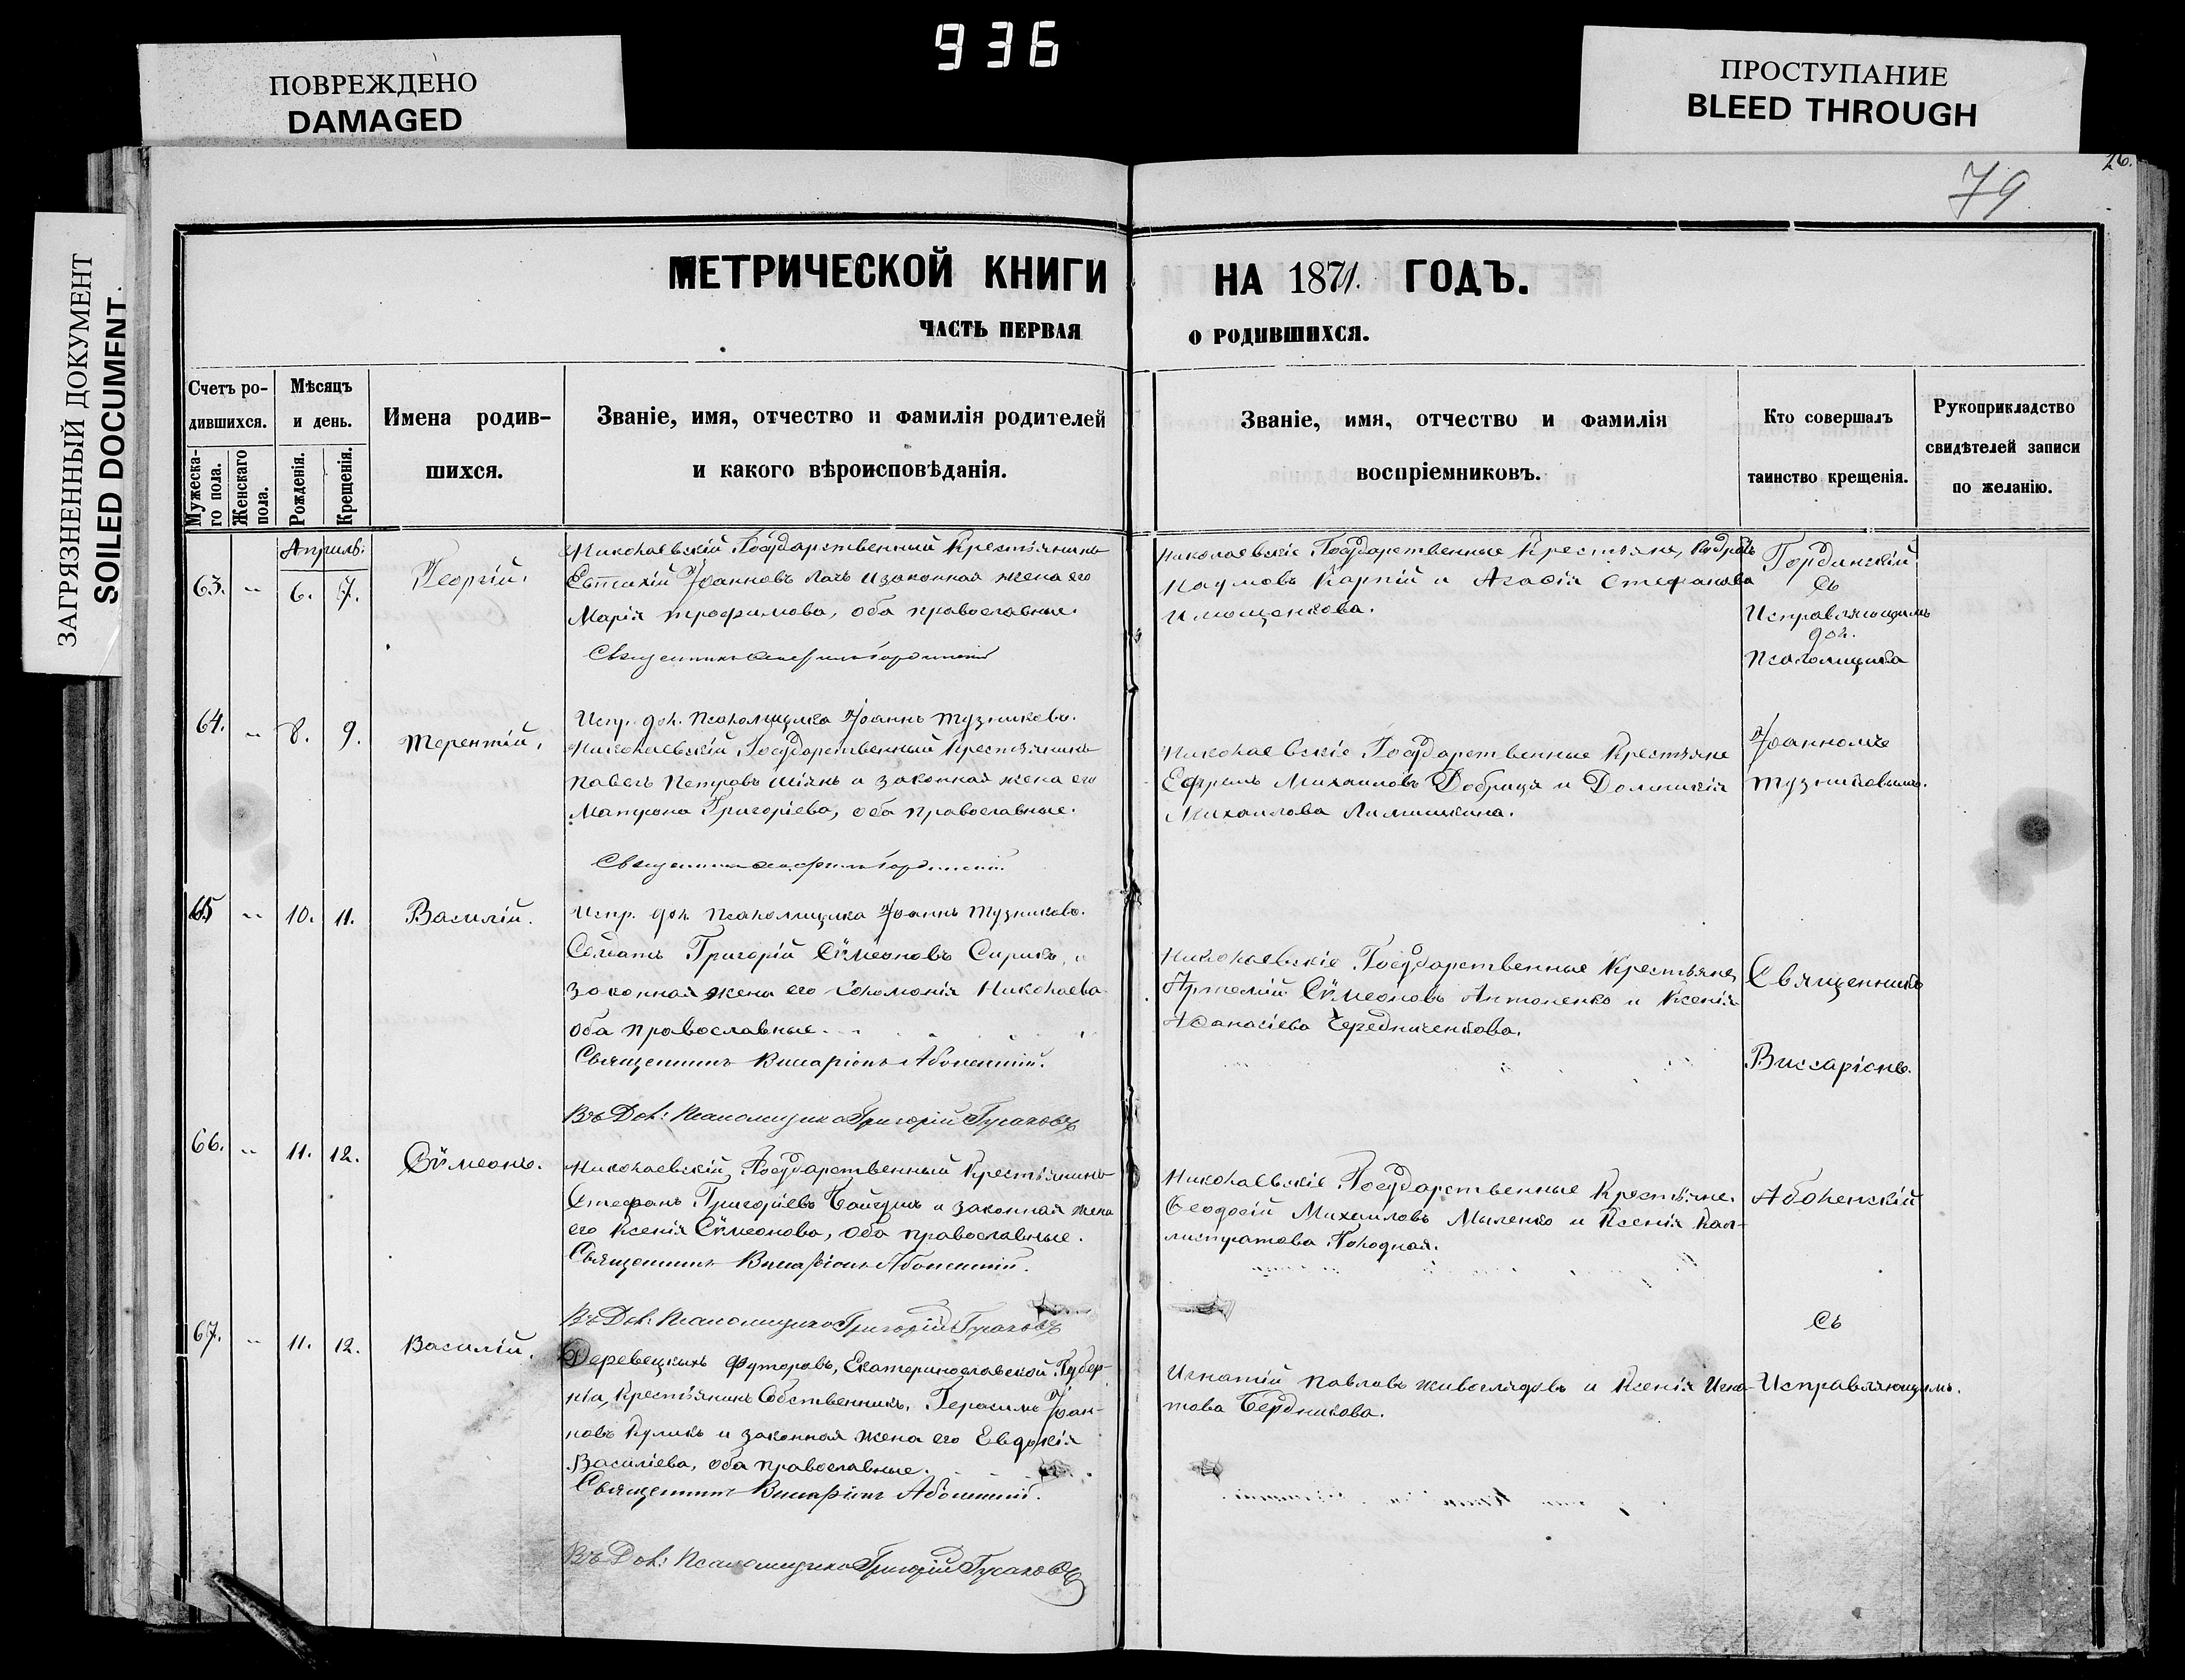 936
ПОВРЕЖДЕНО
DAMAGED
ПРОСТУПАНИЕ
BLEED THROUGH
ЗАГРЯЗНЕННЫЙ ДОКУМЕНТ
SOILED DOCUMENT
26.
79
МЕТРИЧЕСКОЙ КНИГИ НА 1871. ГОДЪ.
ЧАСТЬ ПЕРВАЯ О РОДИВШИХСЯ.
Счетъ родившихся.
Мужескаго пола.
Женскаго пола.
Мѣсяцъ и день.
Рожденія.
Крещенія.
Имена родившихся.
Званіе, имя, отчество и фамилія родителей
и какого вѣроисповѣданія.
Званіе, имя, отчество и фамилія
воспріемниковъ.
Кто совершалъ
таинство крещенія.
Рукоприкладство
свидѣтелей записи
по желанію.
Апрѣль:
63. „ 6. 7. Георгій.
Николаевскій Государственный Крестьянинъ
Евтихій Іоанновъ и законная жена его
Марія Трофимова, оба православные.
Священникъ Гординскій
Николаевскіе Государственные Крестьяне,
Наумовъ Карпій и Агафія Стефанова
Гординскій
съ
Исправляющимъ
дол.
Псаломщика
64. „ 8. 9. Терентій.
Испр. дол. Псаломщика Іоаннъ Тузниковъ.
Николаевскій Государственный Крестьянинъ
Павелъ Петровъ и законная жена его
Матрона Григоріева, оба православные.
Священникъ Гординскій
Николаевскіе Государственные Крестьяне
Ефремъ Михаиловъ Добрица и Домникія
Михаилова
Іоанномъ
Тузниковымъ.
65 „ 10. 11. Василій.
Испр. дол. Псаломщика Іоаннъ Тузниковъ.
Солдатъ Григорій Сѵмеоновъ и
законная жена его Соломонія Николаева
оба православные.
Священникъ Виссаріонъ Аболенскій.
Въ Дол: Псаломщика Григорій Гусаковъ
Николаевскіе Государственные Крестьяне,
Артемій Сѵмеоновъ Антоненко и Ксенія
Афанасіева Чередниченкова.
Священникъ
Виссаріонъ
66. „ 11. 12. Сѵмеонъ.
Николаевскій Государственный Крестьянинъ
Стефанъ Григоріевъ и законная жена
его Ксенія Сѵмеонова, оба православные.
Священникъ Виссаріонъ Аболенскій.
Въ Дол: Псаломщика Григорій Гусаковъ
Николаевскіе Государственные Крестьяне.
Феодосій Михаиловъ Мыленко и Ксенія Каллистратова Походная.
Аболенскій
съ
67. „ 11. 12. Василій.
Деревецкихъ Футоровъ, Екатеринославской Губерніи, Крестьянинъ Собственникъ, Герасимъ Іоанновъ Куликъ и законная жена его Евдокія
Василіева, оба православные.
Священникъ Виссаріонъ Аболенскій.
Въ Дол: Псаломщика Григорій Гусаковъ
Игнатій Павловъ Живоглядовъ и Ксенія Игнатова Бердникова.
Исправляющимъ.